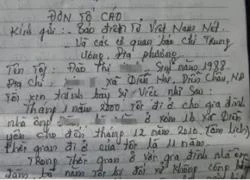 ĐƠN TỐ CÁO.
Kính gửi: - Báo điện tử Việt Nam Nét.
Và các cơ quan báo chí Trung
ương, địa phương.
Tên Tôi: Đào Thị Sinh năm 1988
Địa chỉ: Xã Diễn Diễn Châu, NA
Tôi xin trình bày sự việc như sau:
Tháng 1 năm 2000 tôi đi ở cho gia đình
nhà ông ở xóm 16 xã Diễn
yên cho đến tháng 12 năm 2010 (âm lịch)
thời gian đi ở của tôi là 11 năm
Trong thời gian ở với gia đình nhà
năm tôi